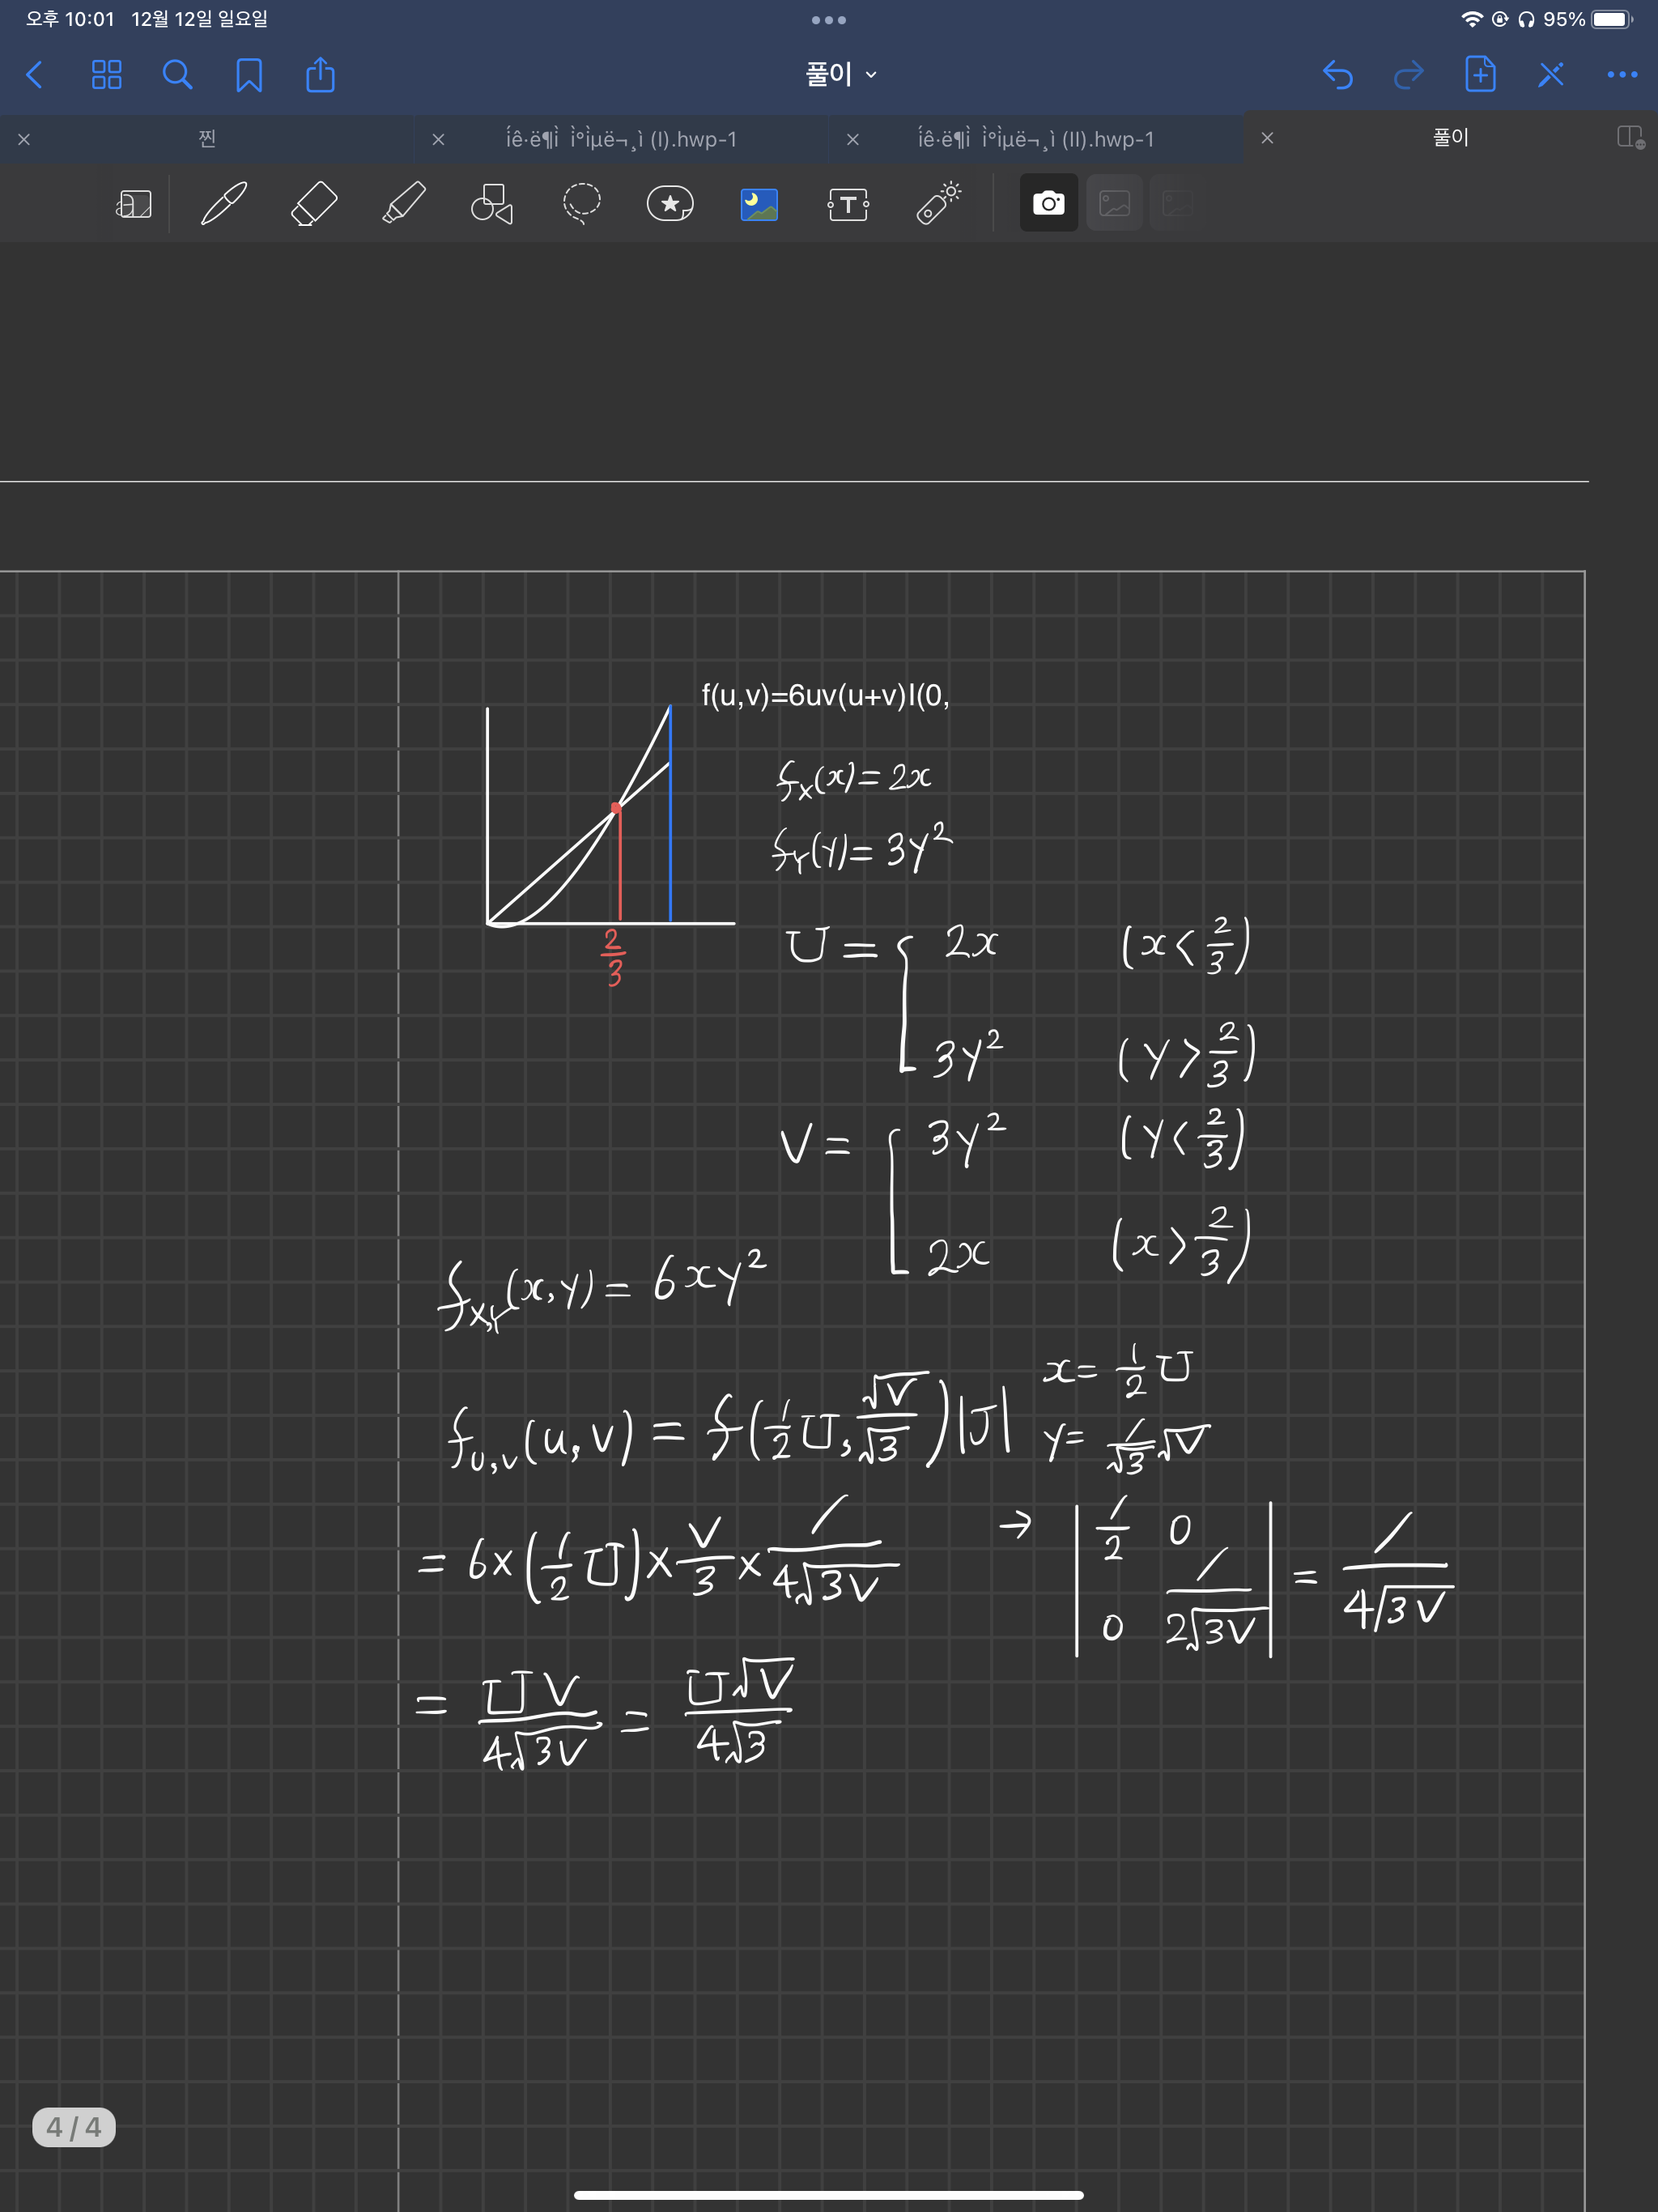 오후 10:01 12월 12일 일요일
95%
풀이
찐
íê·ë¶Ì Ì°Ìµë¬¸ì (I).hwp-1
íê·ë¶Ì Ì°Ìµë¬¸ì (II).hwp-1
풀이
f(u,v)=6uv(u+v)I(0,
f_X(x) = 2x
f_Y(Y) = 3Y²
2/3
U = { 2x (x < 2/3)
3Y² (Y > 2/3)
V = { 3Y² (Y < 2/3)
2x (x > 2/3)
f_X,Y(x,Y) = 6xY²
x = 1/2 U
f_U,V(u,v) = f(1/2 U, √V/√3)|J|
Y = 1/√3 √V
= 6×(1/2 U)×V/3×1/4√3V
→ |1/2 0 0 1/2√3V| = 1/4√3V
= UV/4√3V = U√V/4√3
4 / 4